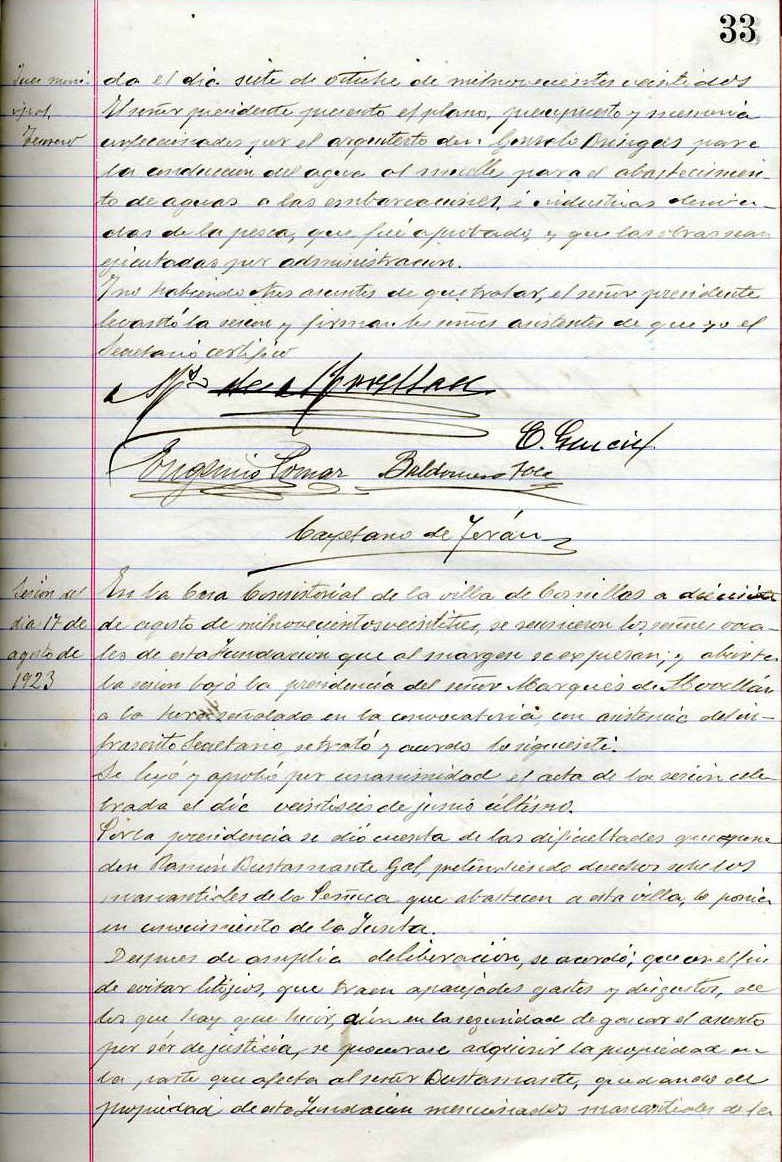 33
Juez muni-
cipal
Tesorero
da el dia siete de octubre de milnovecientos veintidos
El señor presidente presento el plano, presupuesto y memoria
confeccionados por el arquitecto don Gonzalo Bringas para
la conduccion del agua al muelle para el abastecimien-
to de aguas a las embarcaciones, é industrias deriva-
das de la pesca, que fué aprobado, y que las obras sean
ejecutadas por administracion.
Y no habiendo otros asuntos de que tratar, el señor presidente
levantó la sesion y firman los señores asistentes de que yo el
Secretario certifico
de Movellan
E. Garcia
Eugenio Pomar Baldomero
Cayetano de Terán
Sesion del
dia 17 de
agosto de
1923
En la Casa Consistorial de la villa de Comillas a diecisiete
de agosto de milnovecientosveintitres, se reunieron los señores voca-
les de esta Fundacion que al margen se expresan; y abierta
la sesion bajó la presidencia del señor Marqués de Movellán
a la hora señalado en la convocatoria, con asistencia del in-
frascrito Secretario, se trató y acordo lo siguiente:
Se leyó y aprobó por unanimidad el acta de la sesion cele-
brada el dia veintiseis de junio último.
Por la presidencia se dió cuenta de las dificultades que opone
don Ramón Bustamante Gal pretendiendo derechos sobre los
manantiales de la Peñuca que abastecen a esta villa, lo ponia
en conocimiento de la Junta.
Despues de amplia deliberación, se acordó; que con el fin
de evitar litigios, que traen aparejados gastos y disgustos, de
los que hay que huir, aún en la seguridad de ganar el asunto
por sér de justicia, se procurase adquirir la propiedad en
la parte que afecta al señor Bustamante, quedando de
propiedad de esta Fundacion mencionados manantiales de la